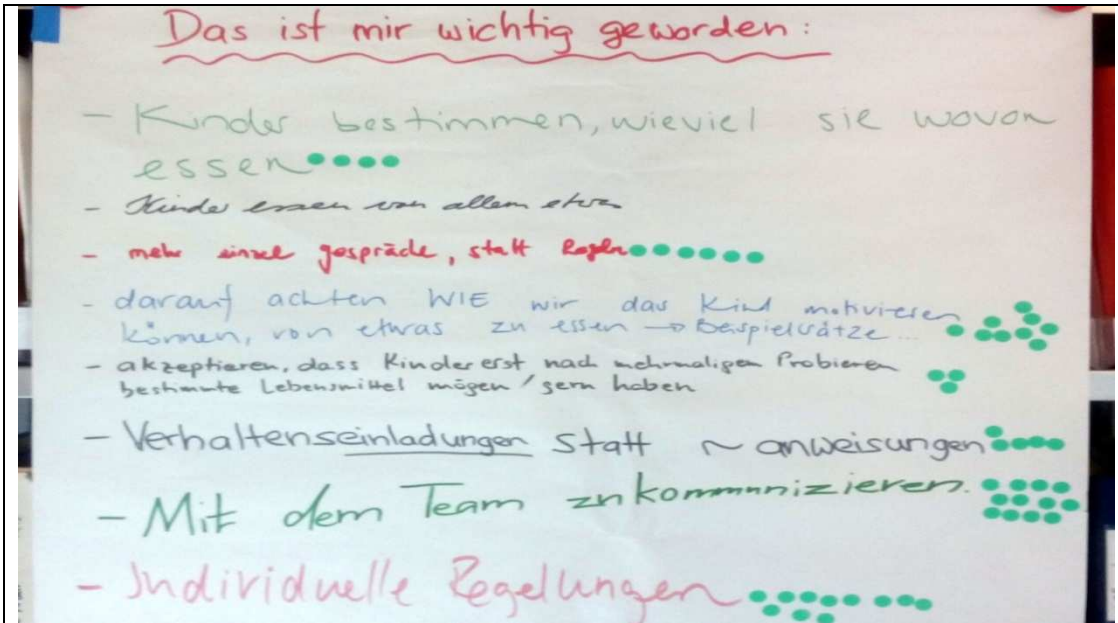 Das ist mir wichtig geworden:
- Kinder bestimmen, wieviel sie wovon
essen
- Kinder essen von allem etwas
- mehr einzel gespräche, statt Regeln
- darauf achten WIE wir das Kind motivieren
können, von etwas zu essen → Beispielsätze...
- akzeptieren, dass Kinder erst nach mehrmaligen Probieren
bestimmte Lebensmittel mögen / gern haben
- Verhaltenseinladungen statt ~ anweisungen
- Mit dem Team zu kommunizieren.
- Individuelle Regelungen